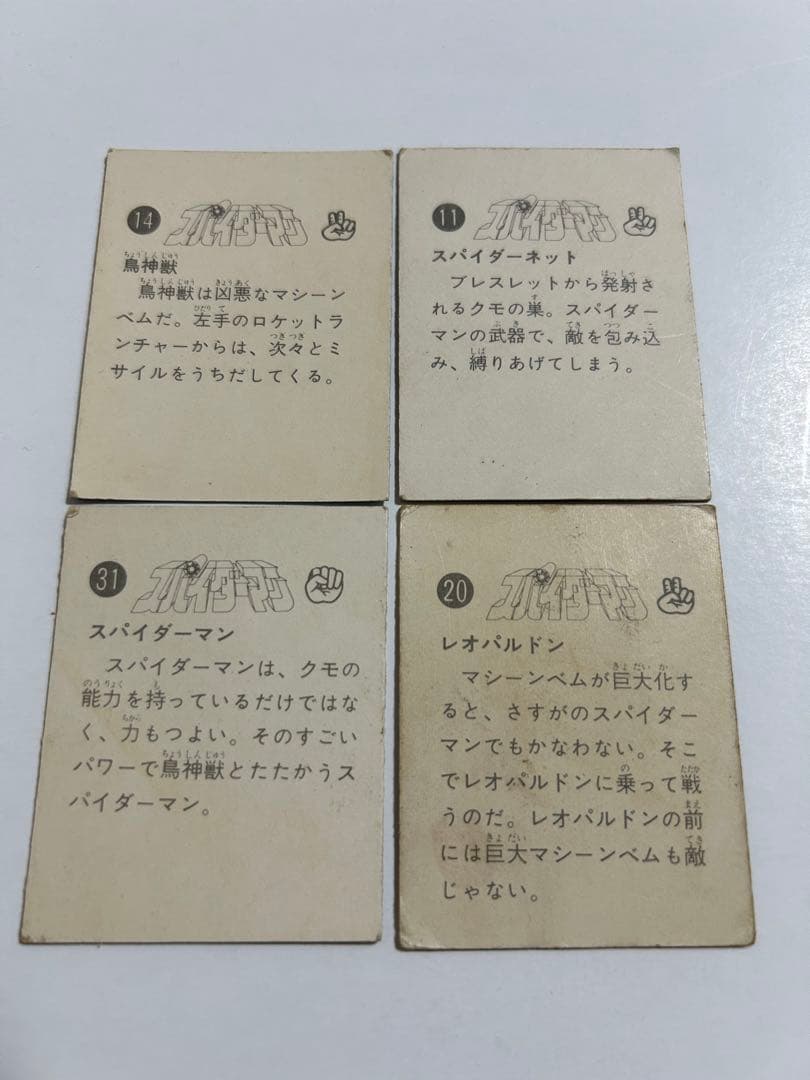 14 スパイダーマン
鳥神獣
鳥神獣は凶悪なマシーン
ベムだ。左手のロケットラ
ンチャーからは、次々とミ
サイルをうちだしてくる。
11 スパイダーマン
スパイダーネット
ブレスレットから発射さ
れるクモの巣。スパイダー
マンの武器で、敵を包み込
み、縛りあげてしまう。
31 スパイダーマン
スパイダーマン
スパイダーマンは、クモの
能力を持っているだけではな
く、力もつよい。そのすごい
パワーで鳥神獣とたたかうス
パイダーマン。
20 スパイダーマン
レオパルドン
マシーンベムが巨大化す
ると、さすがのスパイダー
マンでもかなわない。そこ
でレオパルドンに乗って戦
うのだ。レオパルドンの前
には巨大マシーンベムも敵
じゃない。